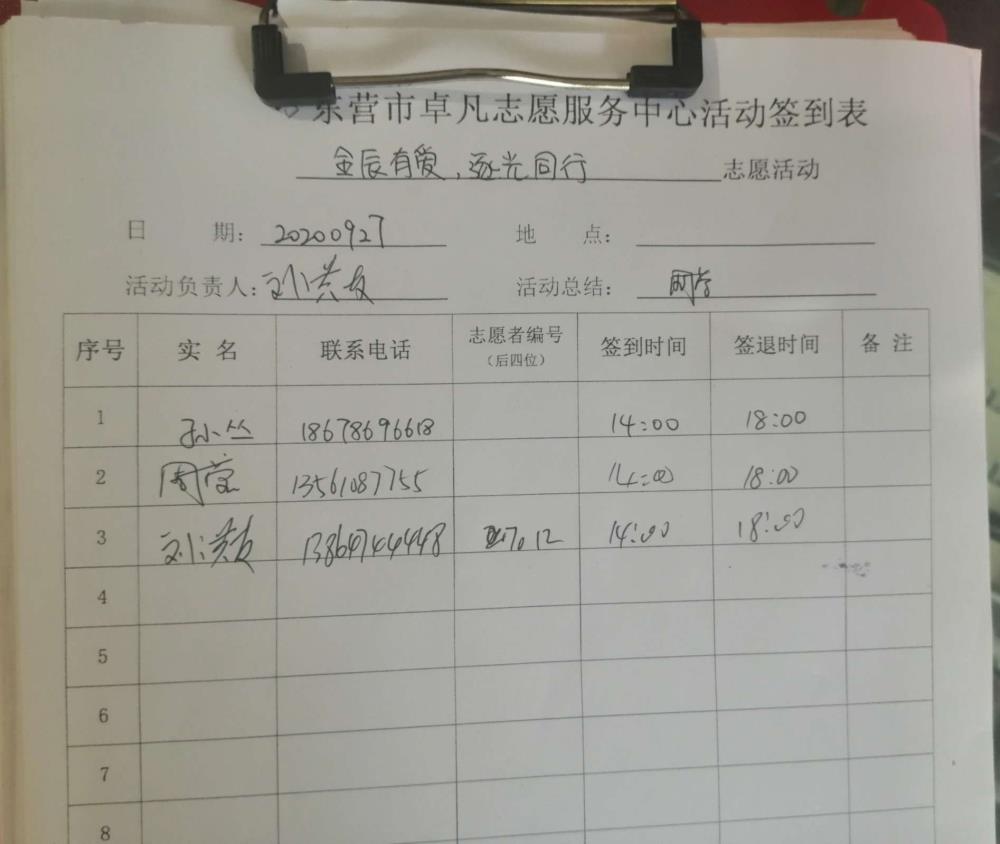 东营市卓凡志愿服务中心活动签到表
金辰有爱，逐光同行 志愿活动
日 期： 20200927 地 点：
活动负责人： 活动总结：
序号 实 名 联系电话 志愿者编号（后四位） 签到时间 签退时间 备 注
1 孙丛 18678696618 14:00 18:00
2 周莹 13561087755 14:00 18:00
3 13869744448 7012 14:00 18:00
4
5
6
7
8